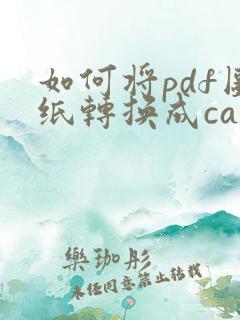 如何将pdf图
纸轉换成ca
樂珈彤
未任同意禁止转载